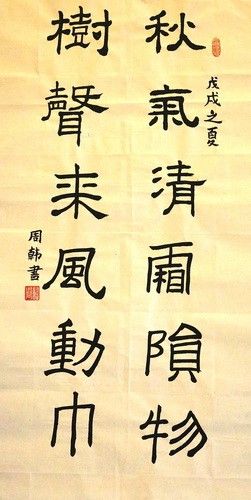 秋氣清霜隕物
戊戌之夏
樹聲来風動巾
周韩書